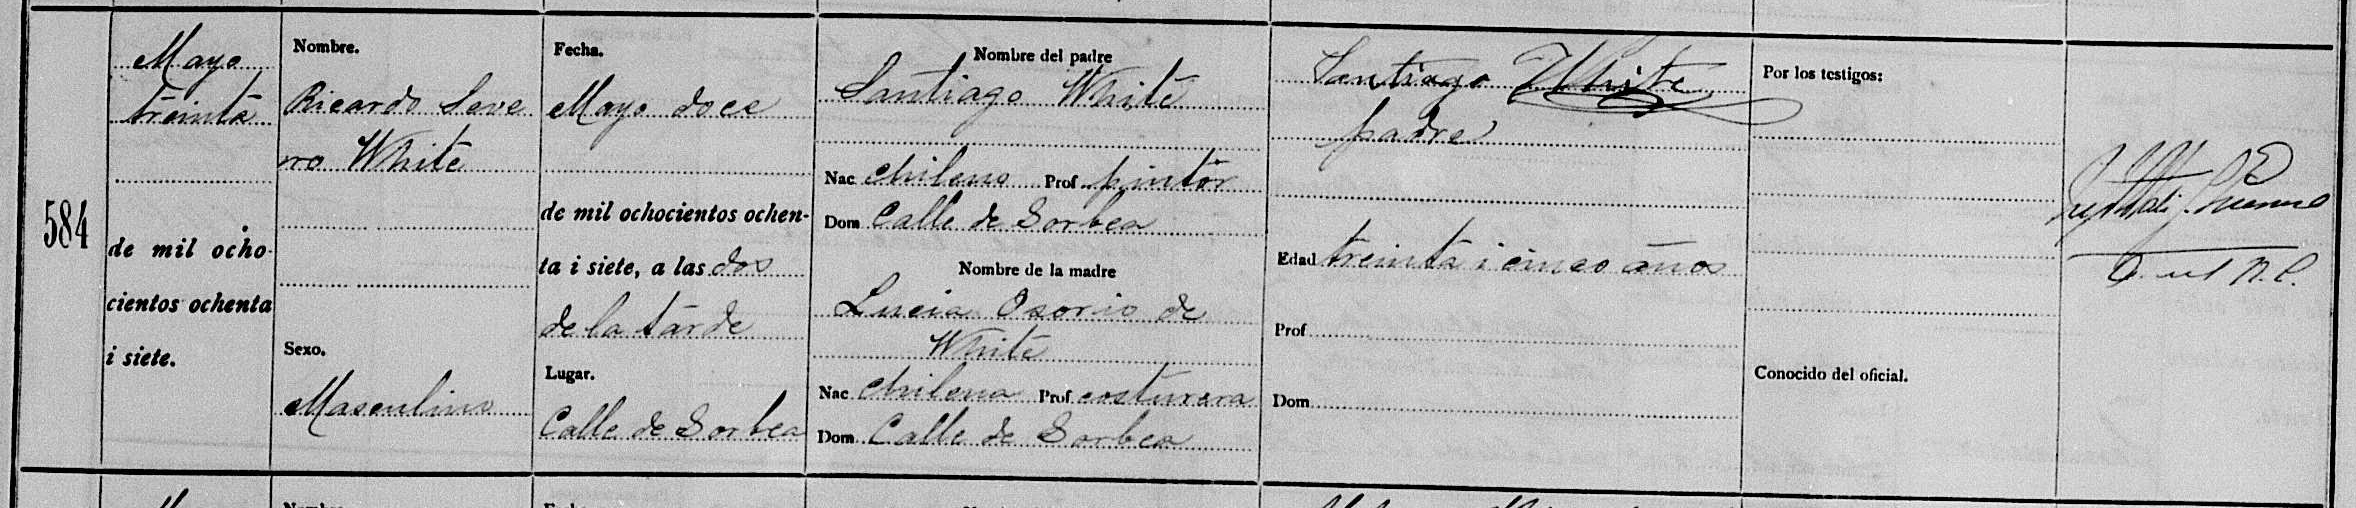 584
Mayo
treinta
de mil ocho-
cientos ochenta
i siete.
Nombre.
Ricardo Seve
ro White
Sexo.
Masculino
Fecha.
Mayo doce
de mil ochocientos ochen-
ta i siete, a las dos
de la tarde
Lugar.
Calle de Sorbea
Nombre del padre
Santiago White
Nac chileno Prof pintor
Dom Calle de Sorbea
Nombre de la madre
Lucia Osorio de
White
Nac chilena Prof costurera
Dom Calle de Sorbea
Santiago White
padre
Edad treinta i cinco años
Prof
Dom
Por los testigos:
Conocido del oficial.
Nombre